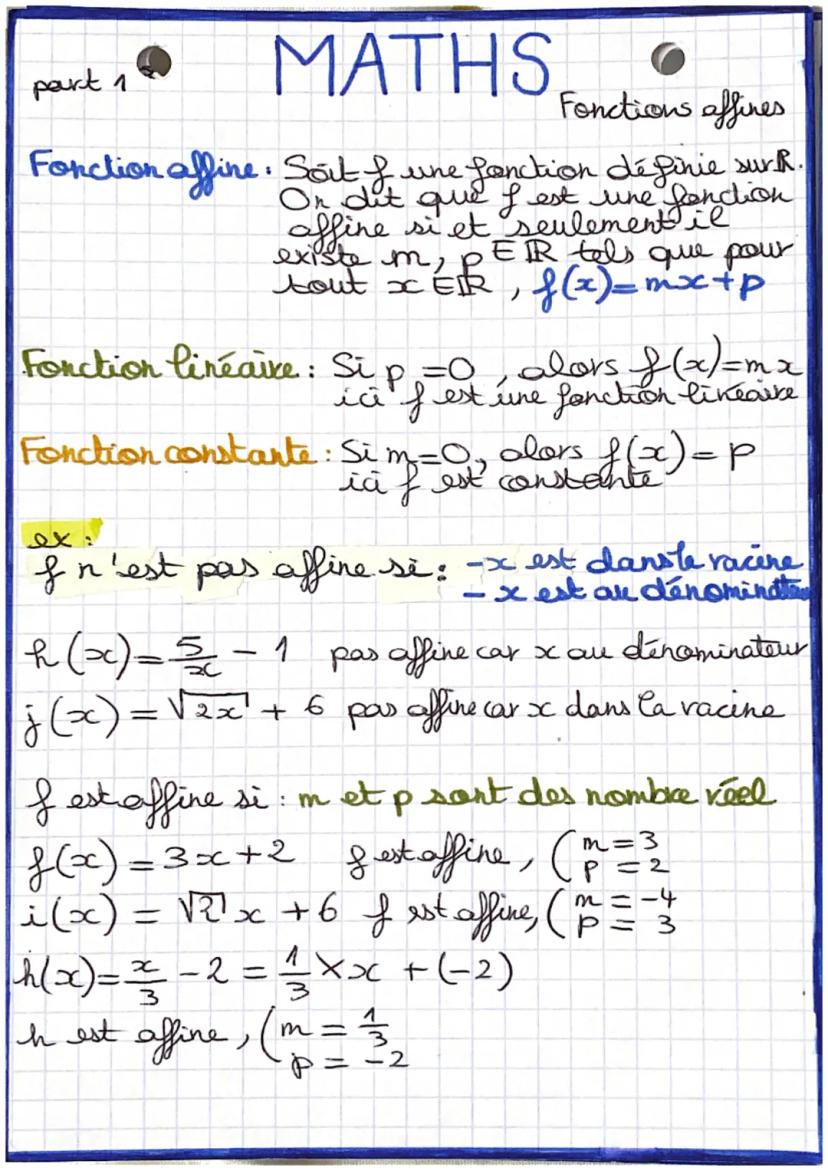 MATHS
part 1
Fonctions affines
Fonction affine : Soit f une fonction définie sur ℝ.
On dit que f est une fonction
affine si et seulement il
existe m, p ∈ ℝ tels que pour
tout x ∈ ℝ, f(x) = mx + p
Fonction linéaire : Si p = 0, alors f(x) = mx
ici f est une fonction linéaire
Fonction constante : Si m = 0, alors f(x) = p
ici f est constante
ex :
f n'est pas affine si : - x est dans la racine
- x est au dénominateur
h(x) = 5/x - 1 pas affine car x au dénominateur
j(x) = √2x + 6 pas affine car x dans la racine
f est affine si : m et p sont des nombre réel
f(x) = 3x + 2 f est affine, ( m = 3
p = 2
i(x) = √2 x + 6 f est affine, ( m = -4
p = 3
h(x) = x/3 - 2 = 1/3 × x + (-2)
h est affine, ( m = 1/3
p = -2